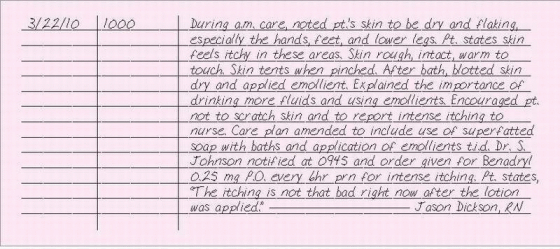 3/22/10 1000 During a.m. care, noted pt.'s skin to be dry and flaking,
especially the hands, feet, and lower legs. Pt. states skin
feels itchy in these areas. Skin rough, intact, warm to
touch. Skin tents when pinched. After bath, blotted skin
dry and applied emollient. Explained the importance of
drinking more fluids and using emollients. Encouraged pt.
not to scratch skin and to report intense itching to
nurse. Care plan amended to include use of superfatted
soap with baths and application of emollients t.i.d. Dr. S.
Johnson notified at 0945 and order given for Benadryl
0.25 mg P.O. every 6hr prn for intense itching. Pt. states,
"The itching is not that bad right now after the lotion
was applied." Jason Dickson, RN